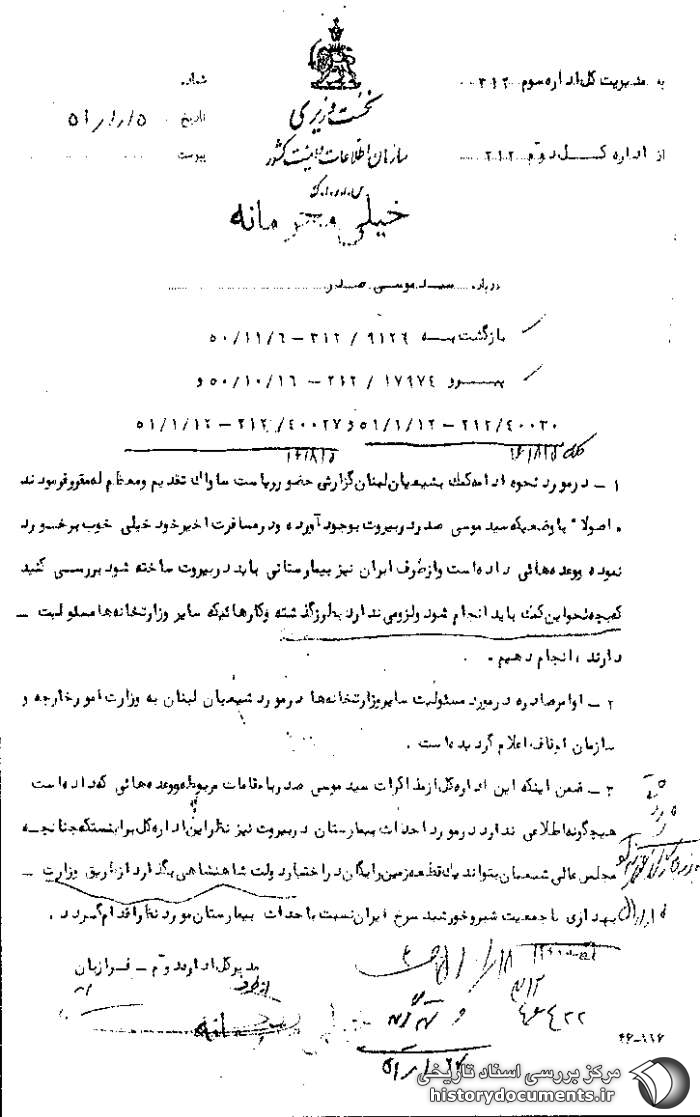 به مدیریت کل اداره سوم ۳۱۲
شماره
نخست وزیری
تاریخ ۵۱/۱/۵
از اداره کل دوم ۲۱۲
سازمان اطلاعات و امنیت کشور
پیوست
س.ا.و.ا.ک
خیلی محرمانه
درباره سید موسی صدر
بازگشت به ۹۱۲۶ / ۳۱۲ – ۵۰/۱۱/۶
پیرو ۱۷۹۷۴ / ۲۱۲ – ۵۰/۱۰/۱۶ و
۲۱۲/۴۰۰۳۰ – ۵۱/۱/۱۲ و ۲۱۲/۴۰۰۲۷ – ۵۱/۱/۱۲
۱ – در مورد نحوه ادامه کمک بشیعیان لبنان گزارشی حضور ریاست ساواک تقدیم و معظم له مقرر فرمودند
اصولا" با وضعیکه سید موسی صدر در بیروت بوجود آورده و در مسافرت اخیر خود خیلی خوب برخورد
نموده و وعده هائی داده است و از طرف ایران نیز بیمارستانی باید در بیروت ساخته شود بررسی کنید
که بچه نحو این کمک باید انجام شود و لزومی ندارد بطرز گذشته و کارهائیکه سایر وزارتخانه ها مسئولیت –
دارند ، انجام دهیم .
۲ – اوامر صادره در مورد مسئولیت سایر وزارتخانه ها در مورد شیعیان لبنان به وزارت امور خارجه و
سازمان اوقاف اعلام گردیده است .
۳ – ضمن اینکه این اداره کل از مذاکرات سید موسی صدر با مقامات مربوطه و وعده هائی که داده است
هیچگونه اطلاعی ندارد در مورد احداث بیمارستان در بیروت نیز نظر این اداره کل بر اینستکه چنانچه
مجلس عالی شیعیان بتواند یک قطعه زمین رایگان در اختیار دولت شاهنشاهی بگذارد از طریق وزارت –
بهداری یا جمعیت شیر و خورشید سرخ ایران نسبت باحداث بیمارستان مورد نظر اقدام گردد .
مدیر کل اداره دوم – فرازیان
۳۱۲
محرمانه
۴۶-۱۱۶
مرکز بررسی اسناد تاریخی
historydocuments.ir